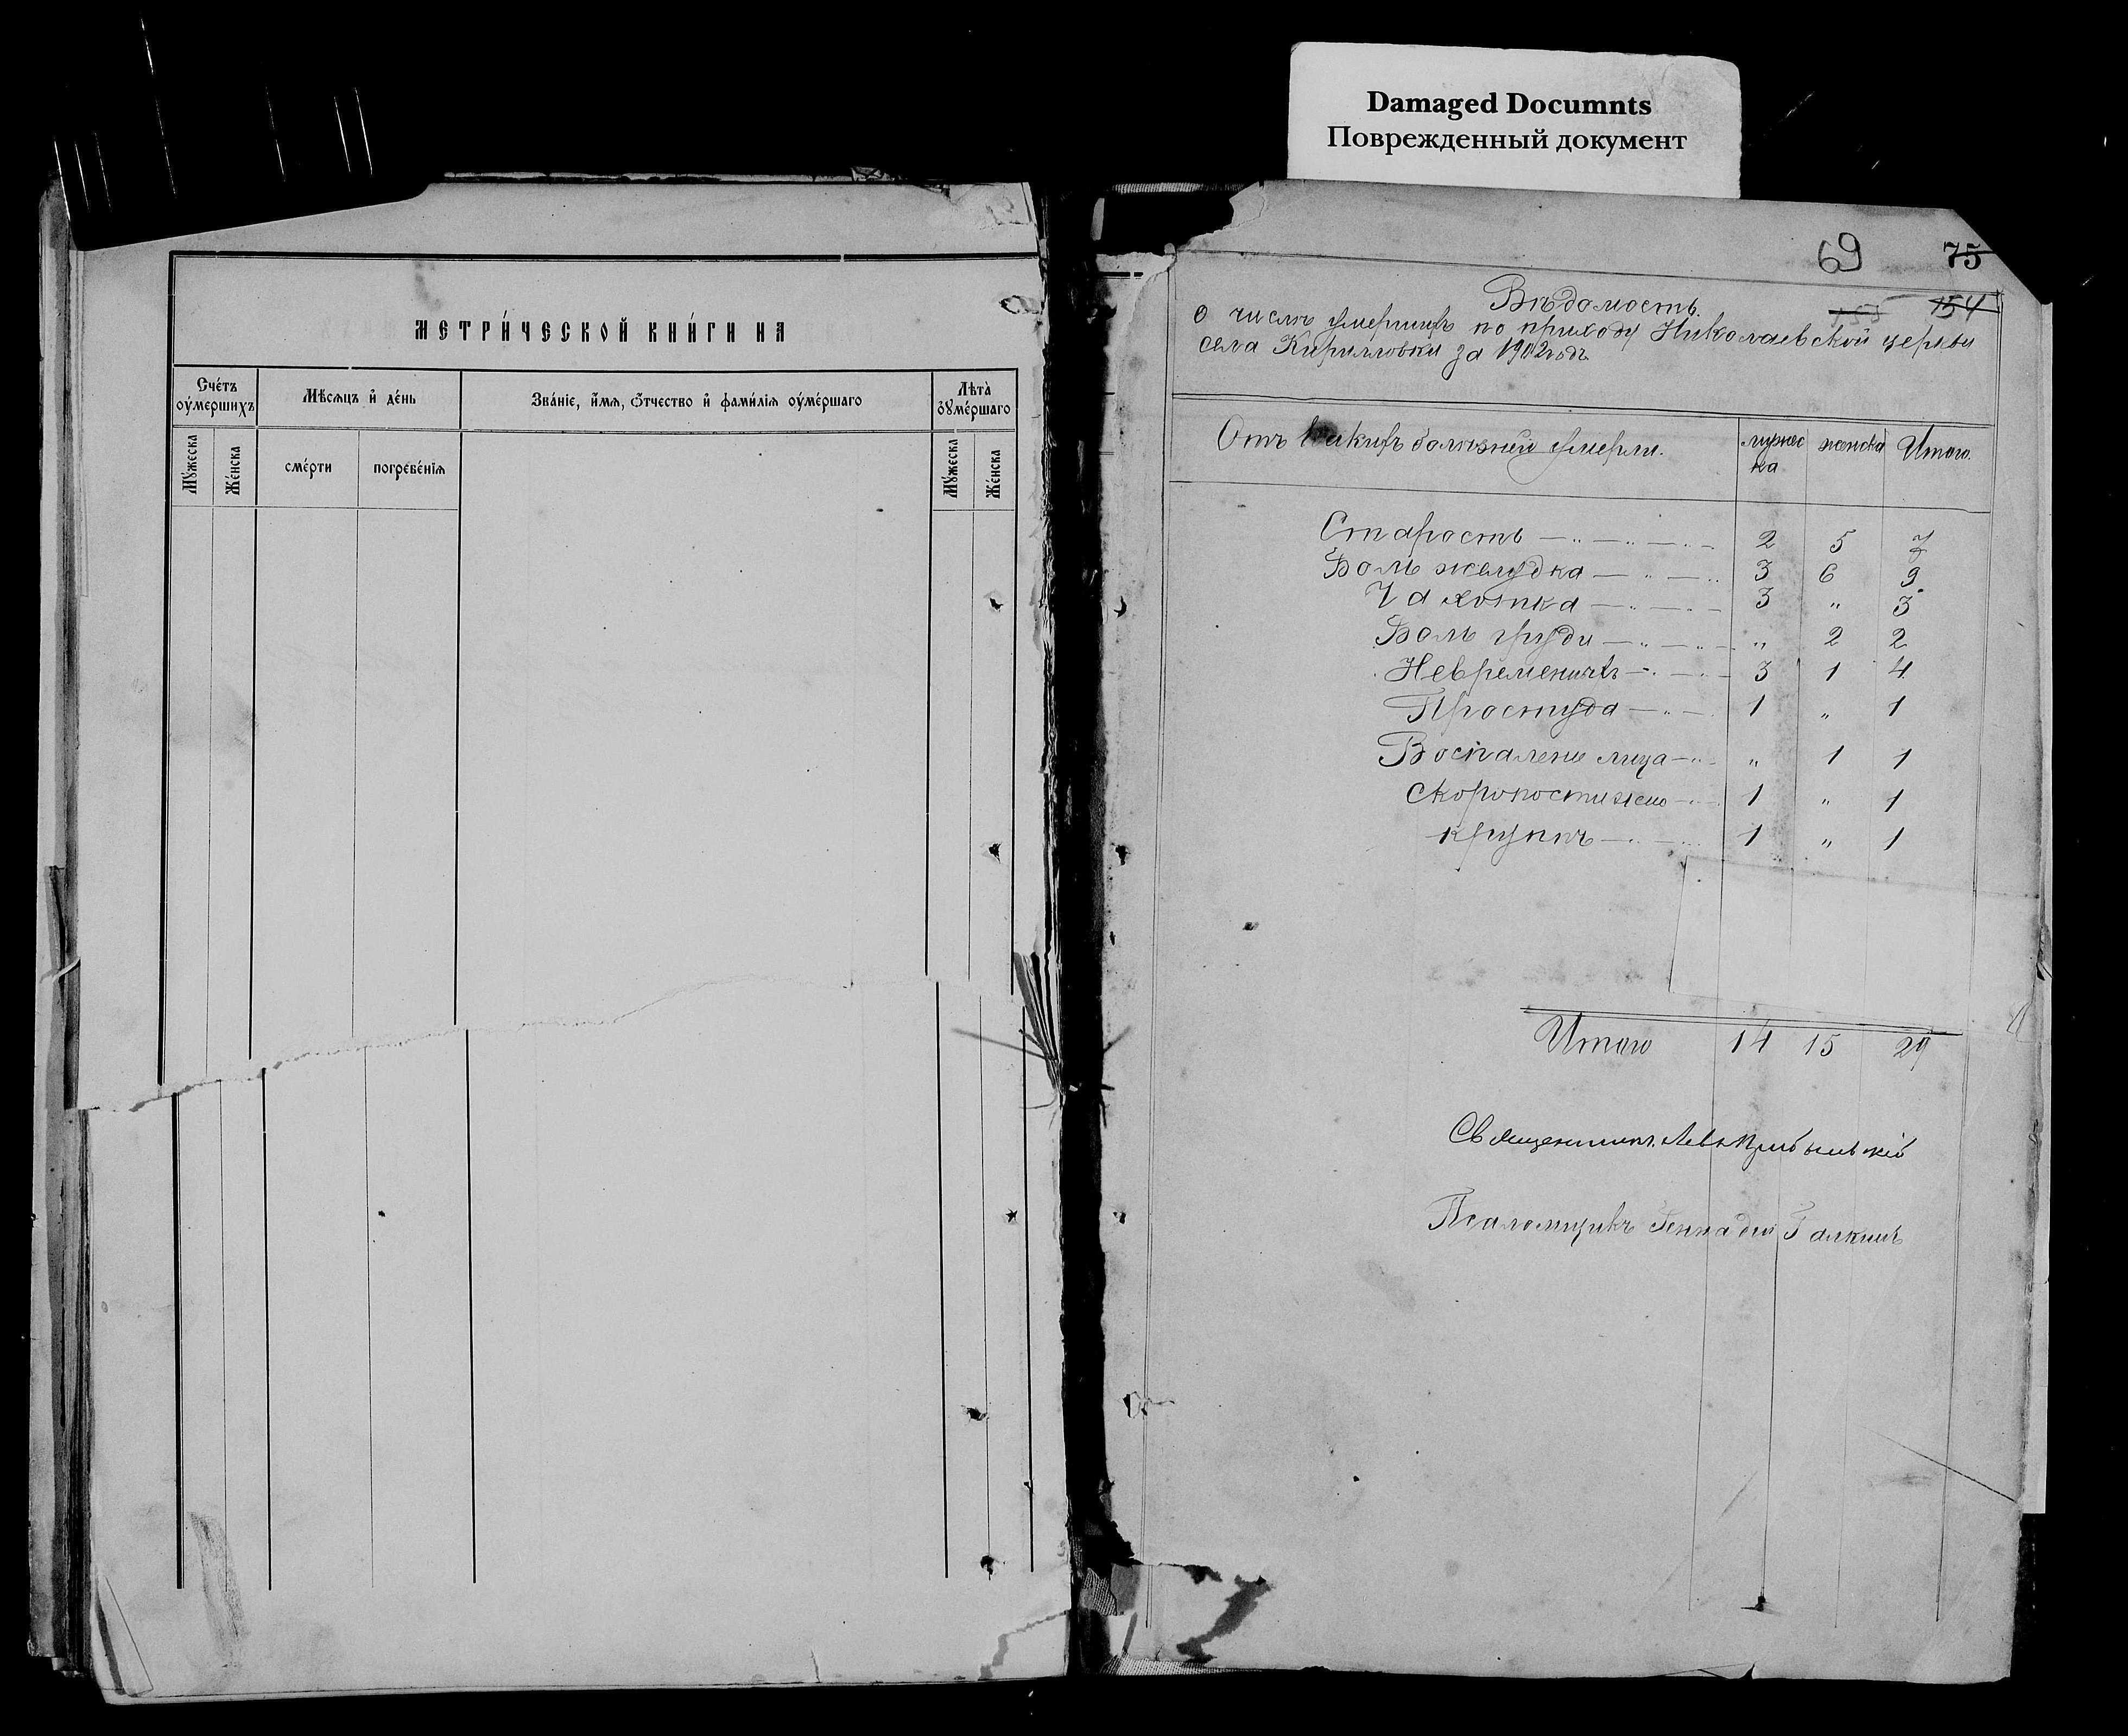 Damaged Documnts
Поврежденный документ
МЕТРИ́ЧЕСКОЙ КНИ́ГИ НА
Сче́тъ ᲂу҆ме́ршихъ
Мѣ́сѧцъ и҆ де́нь
Зва́нїе, и҆́мѧ, ѻ҆́тчество и҆ фами́лїѧ ᲂу҆ме́ршаго
Лѣта̀ ᲂу҆ме́ршаго
Мꙋ́жеска
Же́нска
сме́рти
погребе́нїѧ
Мꙋ́жеска
Же́нска
69 75
Вѣдомость.
155 154
о числѣ умершихъ по приходу Николаевской церкви
села Кирилловки за 1902 годъ
Отъ какихъ болѣзней умерли. мужес ка женска Итого.
Старость 2 5 7
Боль желудка 3 6 9
Чахотка 3 " 3
Боль груди " 2 2
3 1 4
Простуда 1 " 1
Воспаленіе лица " 1 1
Скоропостижно 1 " 1
крупъ 1 " 1
Итого 14 15 29
Священникъ Левъ
Псаломщикъ Геннадій Галкинъ